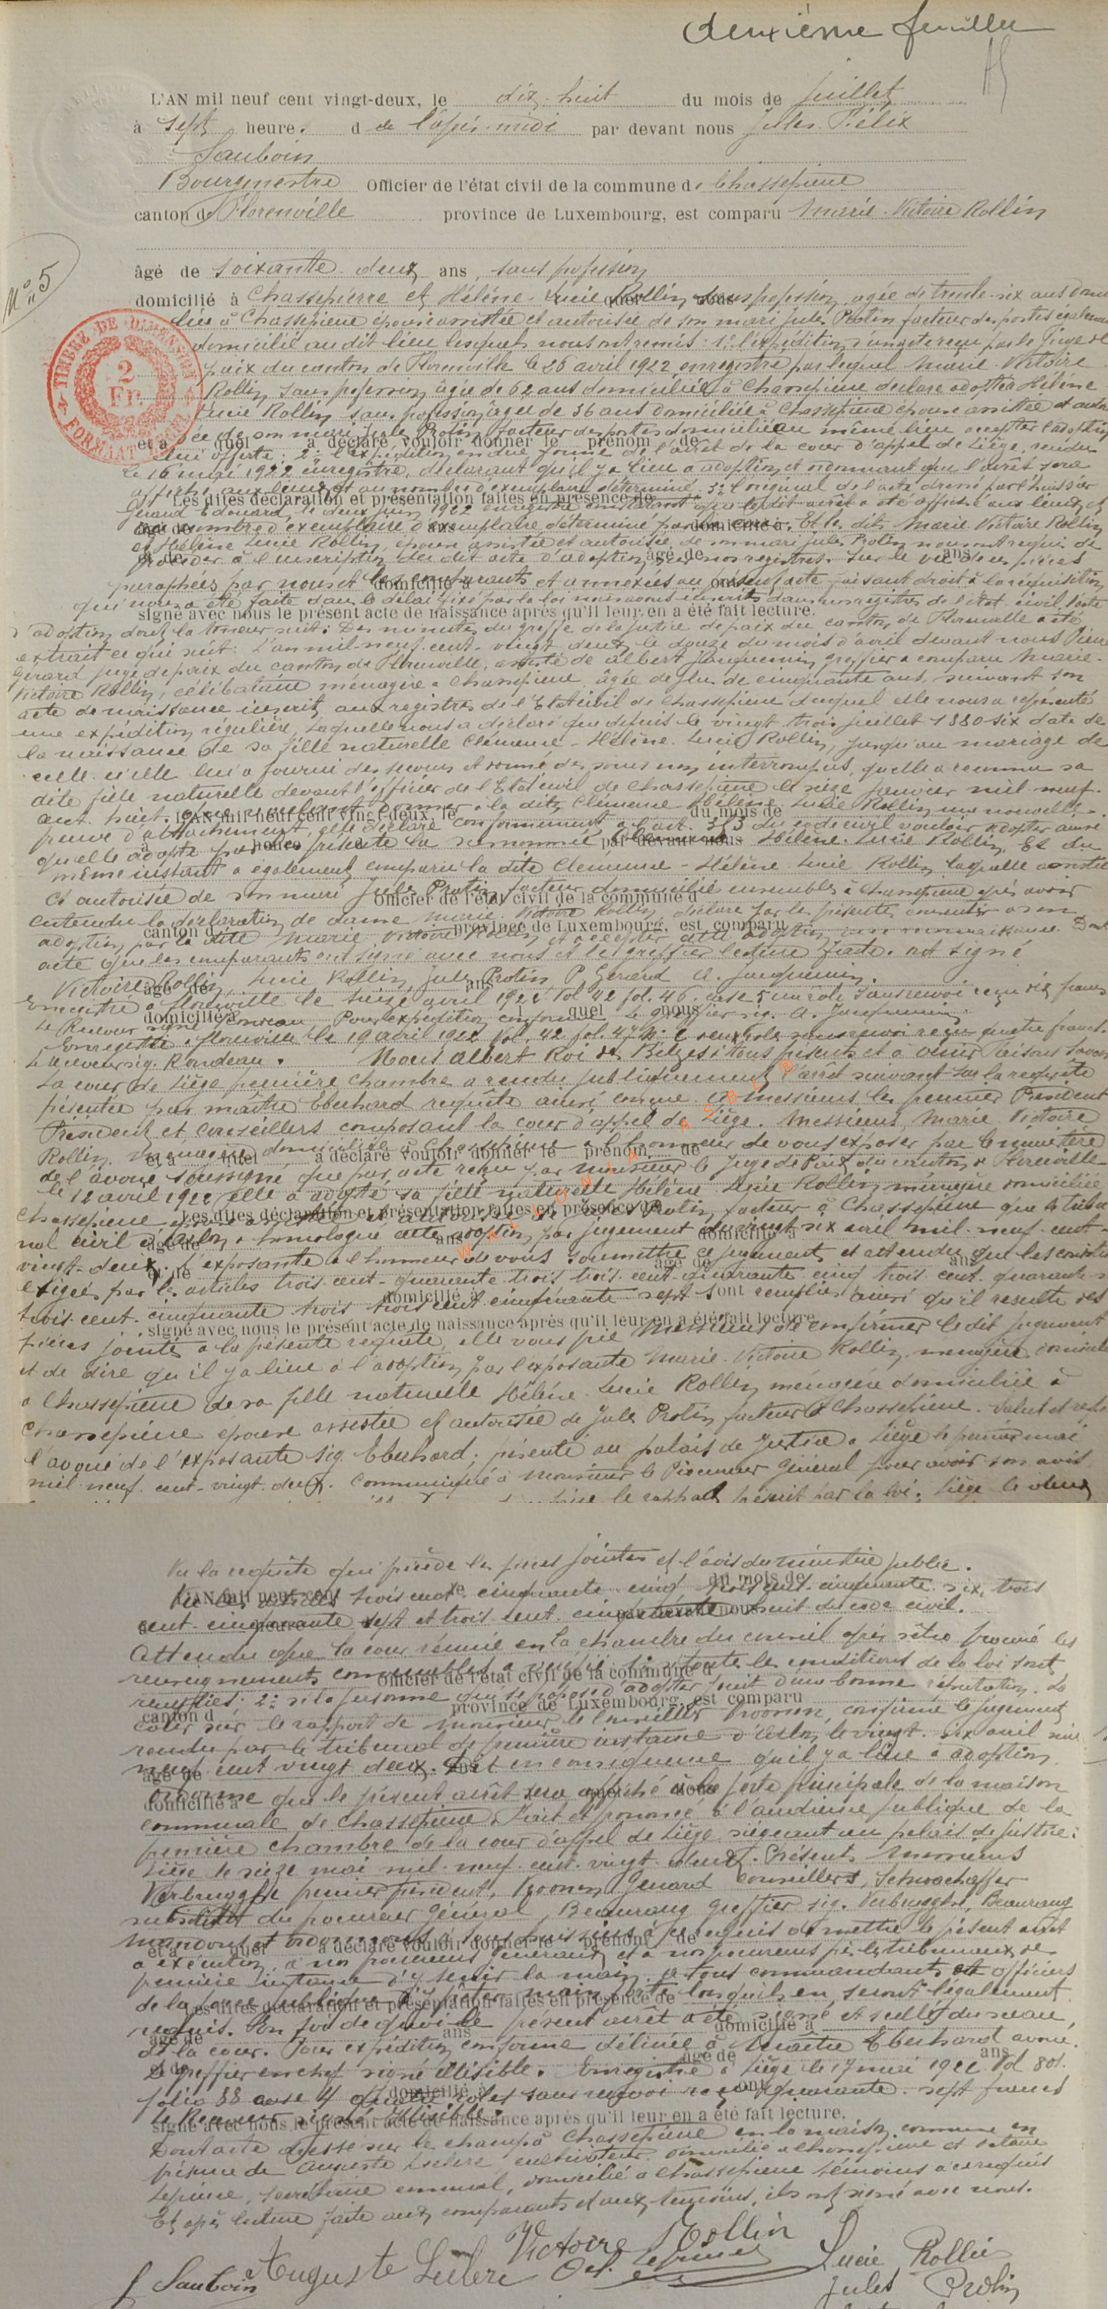 deuxième feuillet
L'AN mil neuf cent vingt-deux, le dix-huit du mois de juillet
à sept heure. d de l'après-midi par devant nous Jules Félix
Sauboin
Bourgmestre Officier de l'état civil de la commune d. Chassepierre
canton de Florenville province de Luxembourg, est comparu Marie-Victoire Rollin
âgé de soixante deux ans, sans profession
N° 5
domicilié à Chassepierre et Hélène-Lucie Rollin sans profession, agée de trente-six ans domi
ciliée à Chassepierre épouse assistée et autorisée de son mari Jules Protin facteur des postes
domicilié au dit lieu lesquels nous ont remis: 1° l'expédition d'un acte reçu par le Juge de
TIMBRE DE DIMENSION
2 Fr.
paix du canton de Florenville le 26 avril 1922 enregistré par lequel Marie-Victoire
Rollin sans profession agée de 62 ans domiciliée à Chassepierre déclare adopter Hélène
Lucie Rollin sans profession agée de 36 ans domiciliée à Chassepierre épouse assistée et auto
risée de son mari Jules Protin facteur des postes domicilié au même lieu accepter l'adoption
et a quel à déclaré vouloir donner le prénom de
lui offerte; 2° l'expédition en due forme de l'arrêt de la cour d'appel de Liège, rendu
le 16 mai 1922 enregistré, déclarant qu'il y a lieu a adoption et ordonnant que l'arrêt sera
affiché aux lieux et au nombre d'exemplaire déterminé; 3° l'original de l'acte dressé par l'huissier
Les dites déclaration et présentation faites en présence de
Gérard Edouard, le deux juin 1922 enregistré constatant que le dit arrêt a été affiché aux lieux et
au nombre d'exemplaire déterminé par la cour. Et les dits Marie Victoire Rollin
et Hélène Lucie Rollin, épouse assistée et autorisée de son mari Jules Protin nous ont requis de
procéder à l'inscription du dit acte d'adoption sur nos registres. Sur le vu des pièces
paraphées par nous et les comparants et annexées au présent acte faisant droit à la requisition
qui nous a été faite dans le délai fixé par la loi nous avons inscrit dans nos registres de l'état civil l'acte
signé avec nous le présent acte de naissance après qu'il leur en a été fait lecture.
d'adoption dont la teneur suit: Des minutes du greffe de la justice de paix du canton de Florenville a été
extrait ce qui suit: L'an mil-neuf-cent-vingt-deux le douze du mois d'avril devant nous Pierre
Gérard juge de paix du canton de Florenville, assisté de Albert Jacquemin, greffier a comparu Marie-
Victoire Rollin, célibataire ménagère à Chassepierre, agée de plus de cinquante ans, suivant son
acte de naissance inscrit aux registres de l'Etat civil de Chassepierre duquel elle nous a représenté
une expédition régulière, laquelle nous a déclaré que depuis le vingt trois juillet 1880-six date de
la naissance de sa fille naturelle Clémence-Hélène-Lucie Rollin, jusqu'au mariage de
celle-ci elle lui a fourni des secours et donné des soins non interrompus, qu'elle a reconnu sa
dite fille naturelle devant l'officier de l'Etat civil de Chassepierre le seize janvier mil-neuf-
cent-huit; que voulant donner à la dite Clémence Hélène Lucie Rollin une nouvelle
L'AN mil neuf cent vingt-deux, le du mois de
preuve d'attachement, elle déclare conformément à l'art. 343 du code civil vouloir adopter ainsi
qu'elle adopte par les présentes la susnommée Clémence-Hélène-Lucie Rollin. Et au
même instant a également comparu la dite Clémence-Hélène Lucie Rollin, laquelle assistée
et autorisée de son mari Jules Protin, facteur domicilié ensemble à Chassepierre après avoir
Officier de l'état civil de la commune d
entendu la déclaration de dame Marie-Victoire Rollin déclare par les présentes consentir a son
canton d province de Luxembourg, est comparu
adoption par la dite Marie Victoire Rollin et accepter cette adoption avec reconnaissance. Dont
acte que les comparants ont signé avec nous et le greffier lecture faite. ont signé
Victoire Rollin, Lucie Rollin, Jules Protin P. Gérard A. Jacquemin.
Enregistré à Florenville le seize avril 1922 Vol 42 fol. 46. case 5 un rôle sans renvoi reçu dix francs
Le Receveur signé Rondeau Pour expédition conforme Le Greffier sig. A. Jacquemin.
Enregistré à Florenville le 19 avril 1922 Vol. 42 fol. 47 deux rôles sans renvoi reçu quatre francs.
Le Receveur sig. Rondeau. Nous Albert Roi des Belges à tous présents et à venir faisons savoir
La cour de Liège première chambre a rendu publiquement l'arrêt suivant sur la requête
présentée par maître Eberhard requête ainsi conçue. A messieurs les premier Président
Président et conseillers composant la cour d'appel de Liège. Messieurs, Marie Victoire
Rollin, ménagère domiciliée à Chassepierre a l'honneur de vous exposer par le ministère
et a quel à déclaré vouloir donner le prénom de
de l'avoué soussigné que par acte reçu par monsieur le Juge de Paix du canton de Florenville
le 12 avril 1922 elle a adopté sa fille naturelle Hélène Lucie Rollin ménagère domiciliée
Les dites déclaration et présentation faites en présence de
Chassepierre épouse assistée et autorisée de Jules Protin, facteur à Chassepierre que le tribu
nal civil d'Arlon a homologué cette adoption par jugement du vingt six avril mil-neuf-cent-
vingt-deux. L'exposante a l'honneur de vous soumettre ce jugement et attendu que les conditions
exigées par les articles trois-cent-quarante trois trois-cent-quarante cinq trois cent quarante-
trois-cent-cinquante trois trois cent cinquante sept sont remplies ainsi qu'il résulte des
signé avec nous le présent acte de naissance après qu'il leur en a été fait lecture.
pièces jointes à la présente requête, elle vous prie Messieurs de confirmer le dit jugement
et de dire qu'il y a lieu à l'adoption par l'exposante Marie-Victoire Rollin, ménagère domiciliée
à Chassepierre de sa fille naturelle Hélène-Lucie Rollin ménagère domiciliée à
Chassepierre épouse assistée et autorisée de Jules Protin facteur à Chassepierre. Salut et respect
l'avoué de l'exposante sig. Eberhard; présenté au palais de Justice à Liège le premier mai
mil-neuf-cent-vingt-deux. Communiqué à Monsieur le Procureur Général pour avoir son avis
Vu la requête qui précède les pièces jointes et l'avis du ministère public.
Vu les articles trois cent cinquante cinq trois cent cinquante six, trois
cent cinquante sept et trois cent cinquante huit du code civil.
Attendu que la cour réunie en la chambre du conseil après s'être procuré les
renseignements convenables a vérifié: 1° si toutes les conditions de la loi sont
Officier de l'état civil de la commune d
remplies; 2° si la personne qui se propose d'adopter jouit d'une bonne réputation. La
canton d province de Luxembourg, est comparu
cour sur le rapport de monsieur le conseiller Kroonen, confirme le jugement
rendu par le tribunal de première instance d'Arlon, le vingt-six avril mil
neuf cent vingt deux. Dit en conséquence qu'il y a lieu à adoption
Ordonne que le présent arrêt sera affiché à la porte principale de la maison
communale de Chassepierre. Fait et prononcé à l'audience publique de la
première chambre de la cour d'appel de Liège siégeant au palais de justice:
Liège le seize mai mil-neuf-cent-vingt-deux. Présents messieurs
Verbrugghe premier président, Kroonen, Genard conseillers, Schwachoffer
substitut du procureur général, Beaurang greffier sig. Verbrugghe, Beaurang
Mandons et ordonnons à tous huissiers à ce requis de mettre le présent arrêt
et a quel à déclaré vouloir donner le prénom de
à exécution, à nos procureurs généraux et à nos procureurs près les tribunaux de
première instance d'y tenir la main, à tous commandants et officiers
de la force publique d'y prêter main forte lorsqu'ils en seront légalement
Les dites déclaration et présentation faites en présence de
requis. En foi de quoi le présent arrêt a été signé et scellé du sceau
de la cour. Pour expédition conforme délivrée à Maître Eberhard avoué
Le greffier en chef signé illisible. Enregistré à Liège le 17 mai 1922 Vol 801
folio 88 case 4 quatre rôles sans renvoi reçu quarante-sept francs
Le Receveur signé illisible.
signé avec nous le présent acte de naissance après qu'il leur en a été fait lecture.
Dont acte dressé sur le champ à Chassepierre en la maison commune en
présence de Auguste Leclere cultivateur domicilié à Chassepierre et Octave
Lepinne, secrétaire communal, domicilié à Chassepierre témoins à ce requis
Et après lecture faite aux comparants et aux témoins, ils ont signé avec nous.
Victoire Rollin
J. Sauboin Auguste Leclere Oct. Lepinne Lucie Rollin
Jules Protin